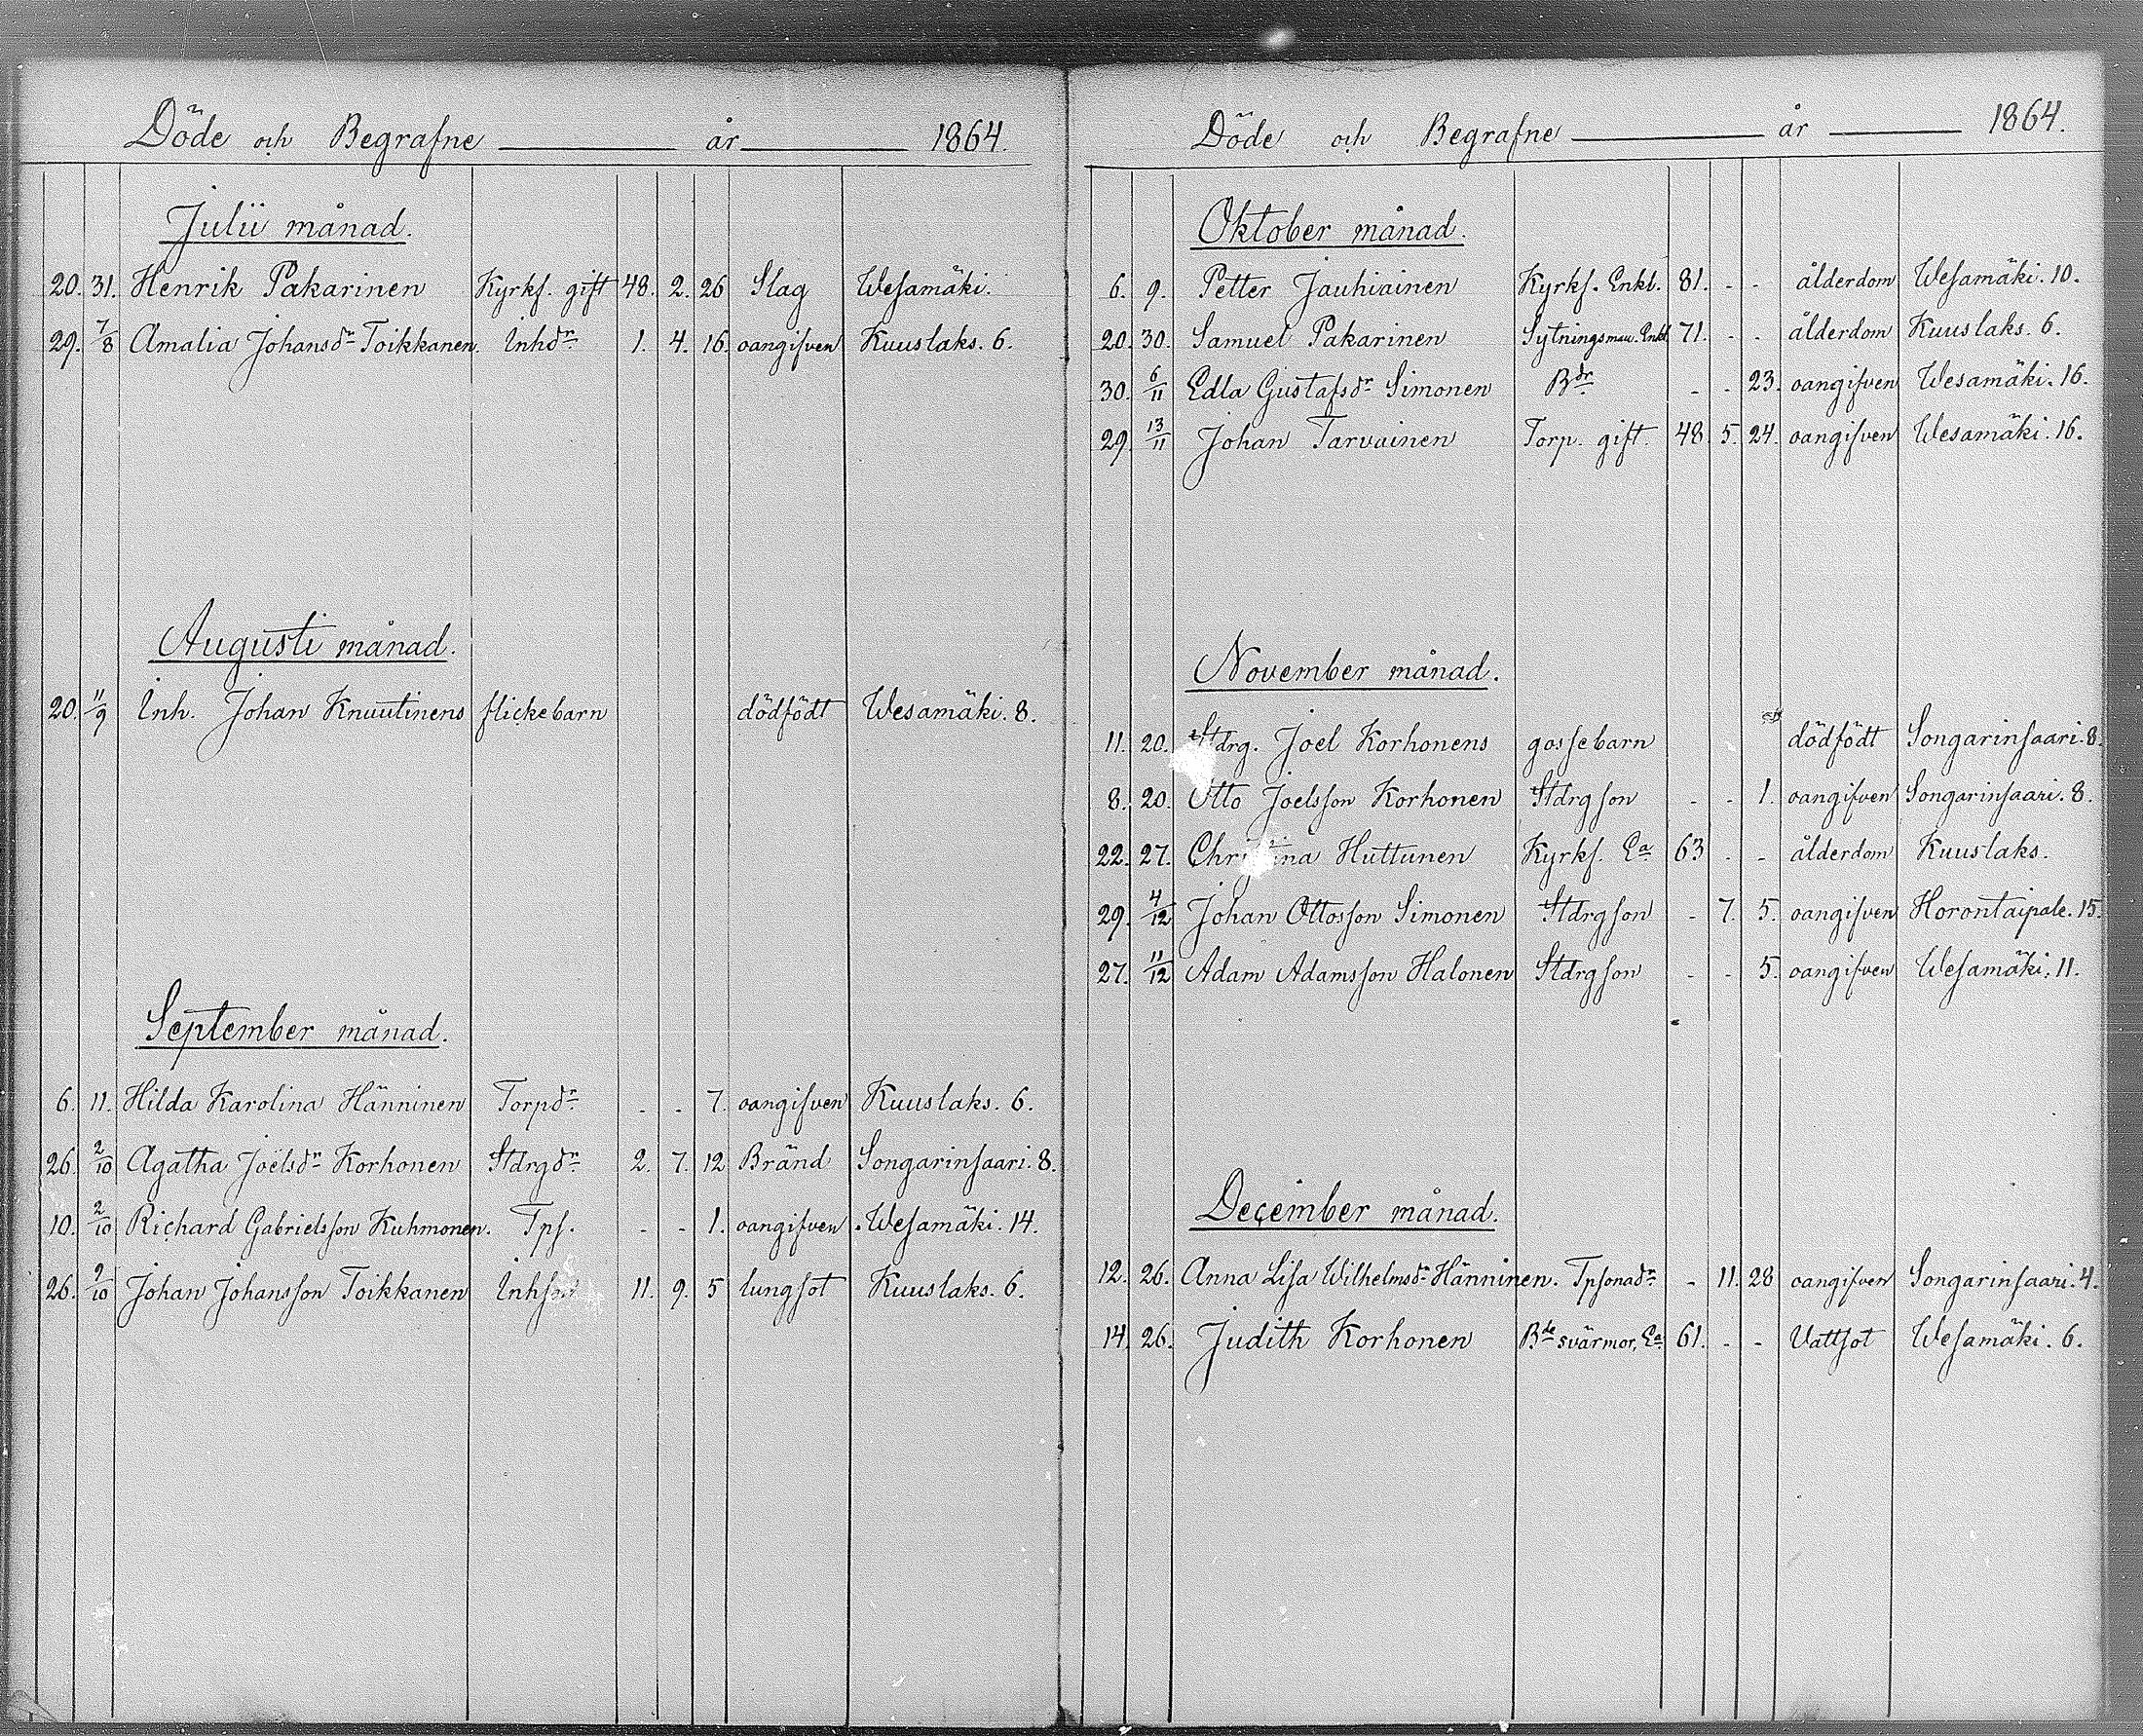 Döde och Begrafne år 1864.
Julii månad.
20. 31. Henrik Pakarinen Kyrks. gift 48. 2. 26 Slag Wesamäki.
29. 7/8 Amalia Johansdr Toikkanen. Inhdr 1. 4. 16. oangifven Kuuslaks. 6.
Augusti månad.
20. 11/9 Inh. Johan Knuutinens flickebarn dödfödt Wesamäki. 8.
September månad.
6. 11. Hilda Karolina Hänninen Torpdr - - 7. oangifven Kuuslaks. 6.
26. 2/10 Agatha Joelsdr Korhonen Stdrgdr 2. 7. 12 Bränd Songarinsaari. 8.
10. 2/10 Richard Gabrielsson Kuhmonen. Tps. - - 1. oangifven Wesamäki. 14.
26. 9/10 Johan Johansson Toikkanen Inhson 11. 9. 5 lungsot Kuuslaks. 6.
Döde och Begrafne år 1864.
Oktober månad.
6. 9. Petter Jauhiainen Kyrks. Enkl. 81. - - ålderdom Wesamäki. 10.
20. 30. Samuel Pakarinen Sytningsman. Enkl 71. - - ålderdom Kuuslaks. 6.
30. 6/11 Edla Gustafsdr Simonen Bdr - - 23. oangifven Wesamäki. 16.
29. 13/11 Johan Tarvainen Torp. gift. 48 5. 24. oangifven Wesamäki. 16.
November månad.
11. 20. Stdrg. Joel Korhonens gossebarn dödfödt Songarinsaari. 8.
8. 20. Otto Joelsson Korhonen Stdrgson - - 1. oangifven Songarinsaari. 8.
22. 27. Christina Huttunen Kyrks. Ea 63 - - ålderdom Kuuslaks.
29. 4/12 Johan Ottosson Simonen Stdrgson - 7. 5. oangifven Horontaipale. 15.
27. 11/12 Adam Adamsson Halonen Stdrgson - - 5. oangifven Wesamäki. 11.
December månad.
12. 26. Anna Lisa Wilhelmsdr Hänninen. Tpsonadr - 11. 28 oangifven Songarinsaari. 4.
14. 26. Judith Korhonen Bde svärmor, Ea 61. - - Vattsot Wesamäki. 6.